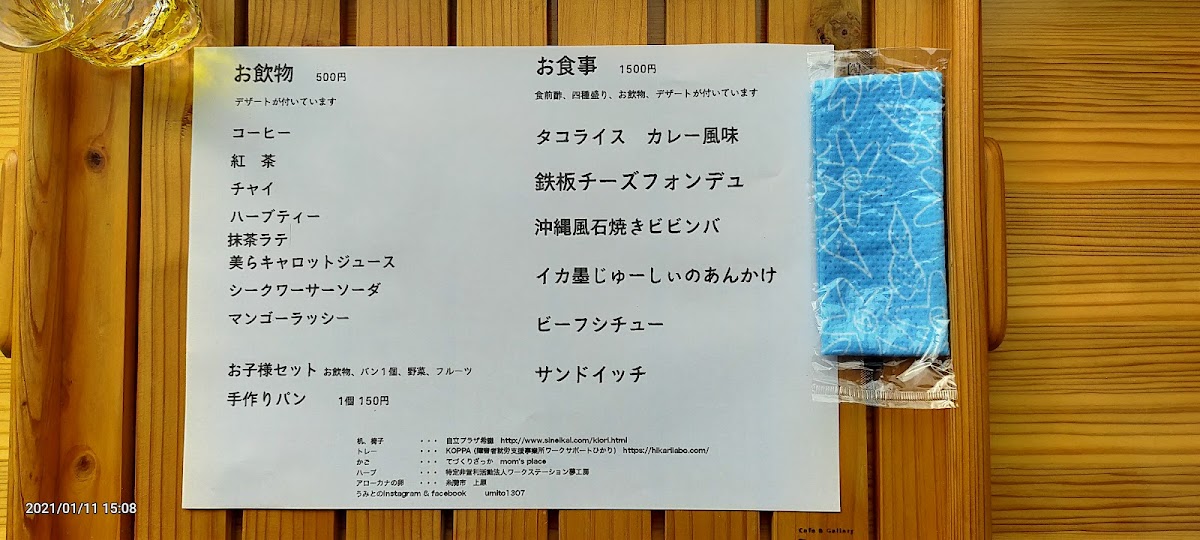 お飲物 500円
デザートが付いています
コーヒー
紅 茶
チャイ
ハーブティー
抹茶ラテ
美らキャロットジュース
シークワーサーソーダ
マンゴーラッシー
お子様セット お飲物、パン1個、野菜、フルーツ
手作りパン 1個 150円
お食事 1500円
食前酢、四種盛り、お飲物、デザートが付いています
タコライス カレー風味
鉄板チーズフォンデュ
沖縄風石焼きビビンバ
イカ墨じゅーしぃのあんかけ
ビーフシチュー
サンドイッチ
机、椅子 ・・・ 自立プラザ希織 http://www.sineikai.com/kiori.html
トレー ・・・ KOPPA (障害者就労支援事業所ワークサポートひかり) https://hikarilabo.com/
かご ・・・ てづくりざっか mom's place
ハーブ ・・・ 特定非営利活動法人ワークステーション夢工房
アローカナの卵 ・・・ 糸満市 上原
うみとのInstagram & facebook umito1307
2021/01/11 15:08
Cafe & Gallery